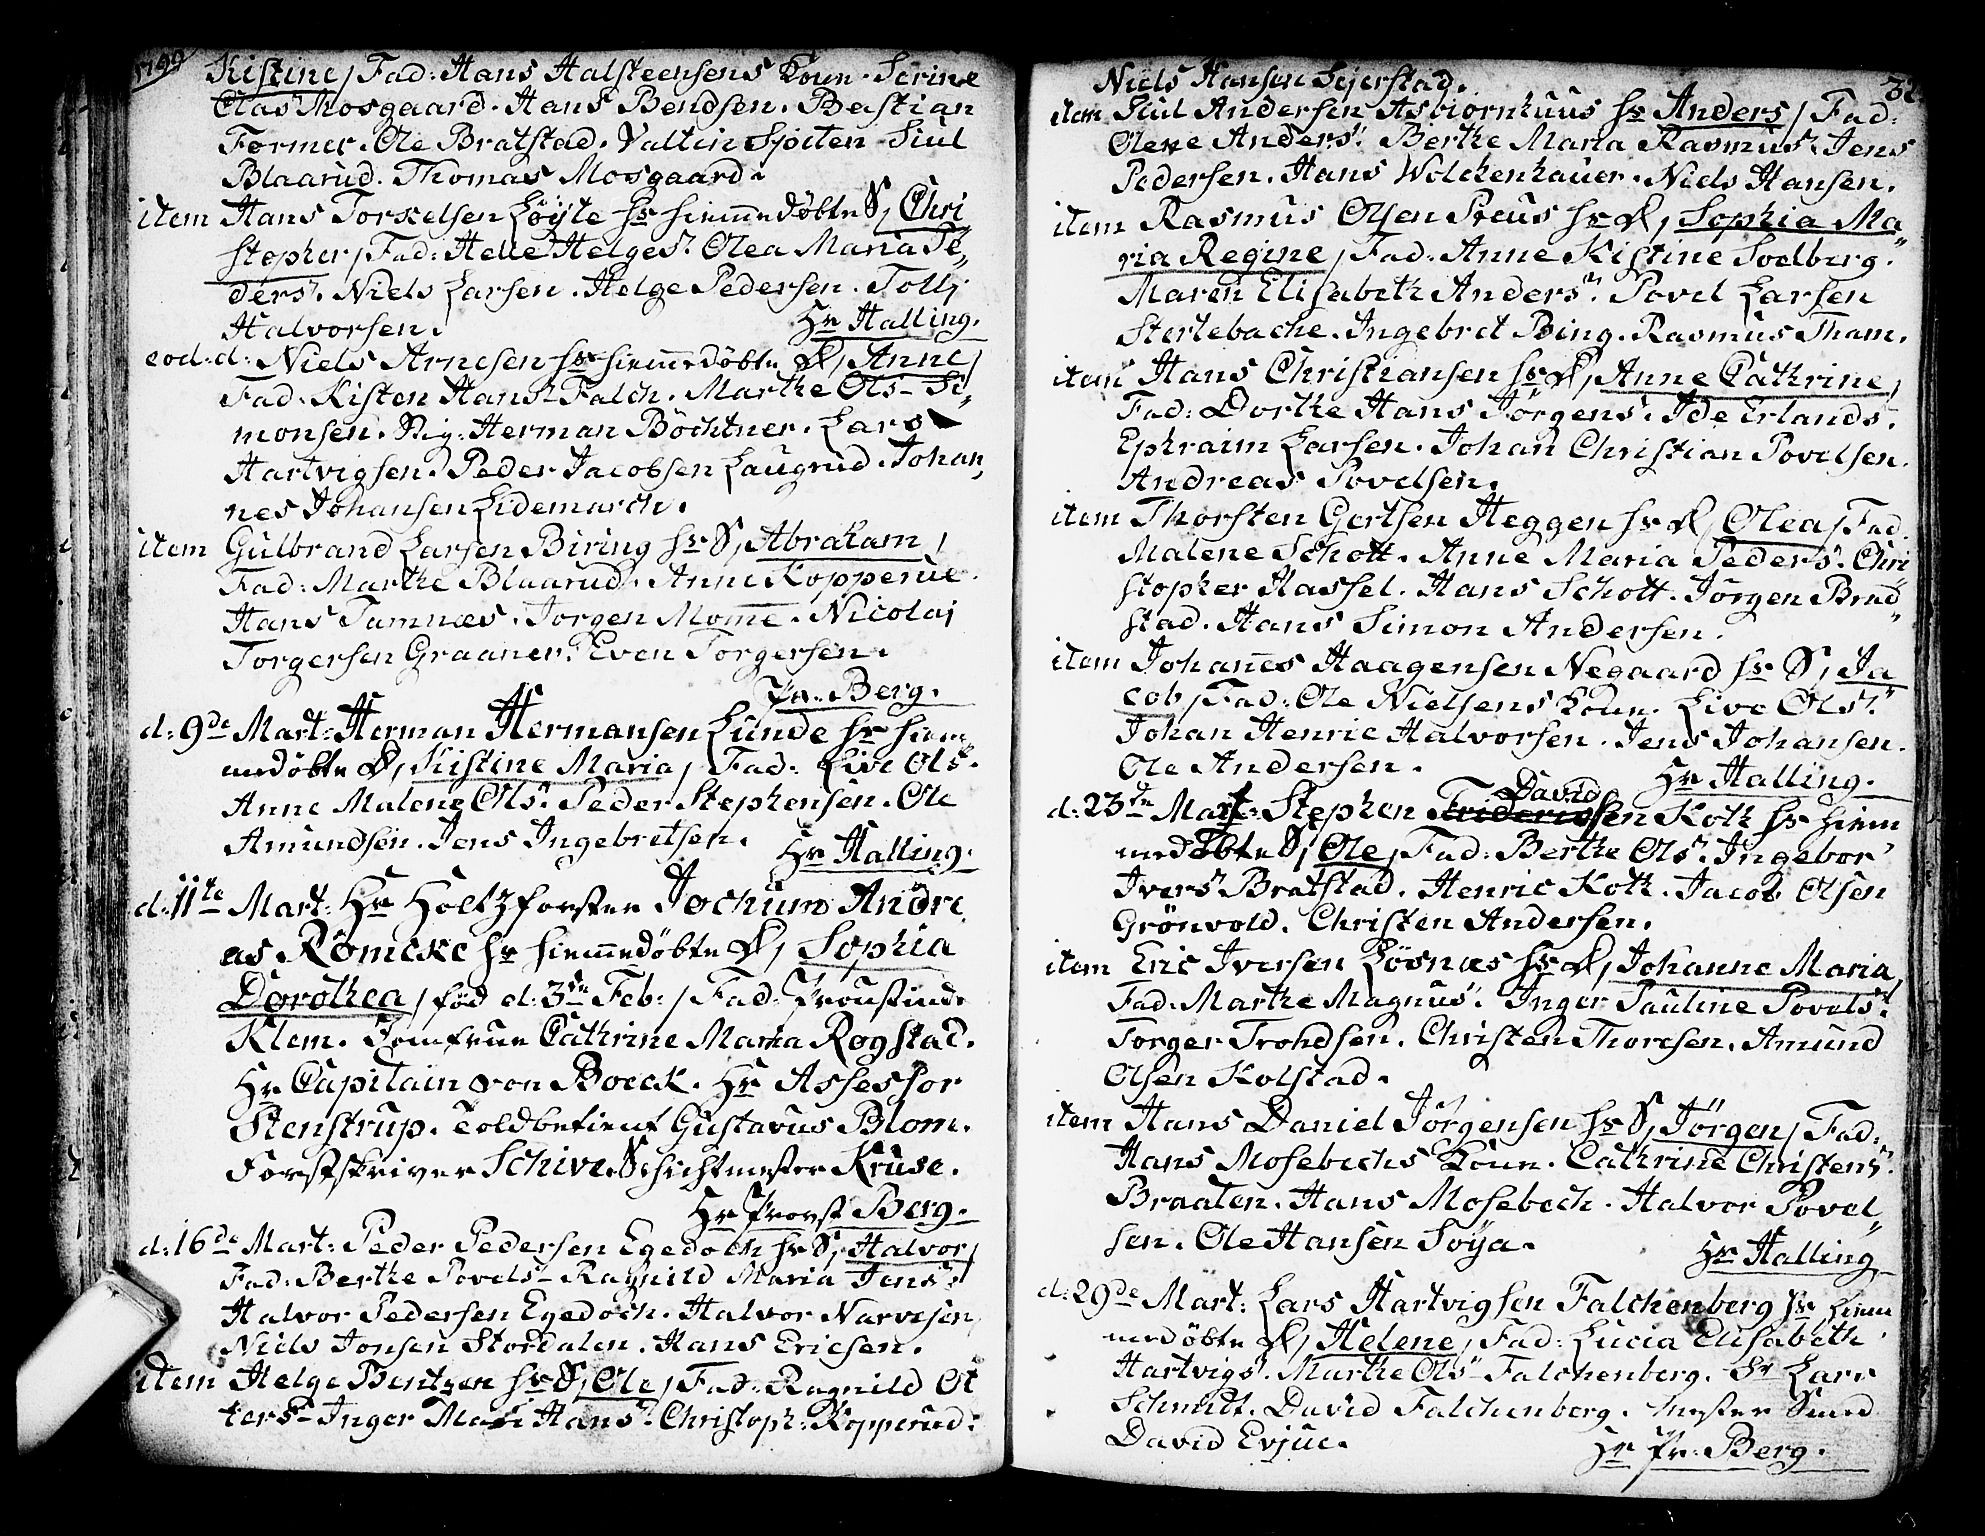 1799
Kistine / Fad: Hans Halsteensens Kone. Serine
Olas Mosgaard. Hans Bendsen. Bastian
Former. Ole Bratstad. Valtin Spiten Siul
Blaarud. Thomas Mosgaard.
item Hans Torkelsen Løyte hr hiemedøbte S, Chri
stopher / Fad: Helle Helgesr. Olea Maria Pe„
dersr. Niels Larsen. Helge Pedersen. Tollj
Halvorsen.
Hr Halling.
eod: d: Niels Arnesen hr hiemedøbte D, Anne /
Fad: Kisten Hans- Falch. Marthe Ols- Si„
monsen. Stig: Herman Böchtner. Lars
Hartvigsen. Peder Jacobsen Laugrud. Johan„
nes Johansen Lidemarch.
item Gulbrand Larsen Biring hr S, Abraham /
Fad: Marthe Blaarud. Anne Kopperue.
Hans Tamnæs. Jorgen Mome. Nicolaj
Torgersen Graaner. Even Torgersen.
Pr: Berg.
d: 9de Mart: Herman Hermansen Lunde hr hiem„
medøbte D, Kistine Maria / Fad: Live Ols-
Anne Malene Olsr. Peder Stephensen. Ole
Amundsen. Jens Ingebretsen.
Hr Halling.
d: 11te Mart: Hr Holtzforster Jochum Andre
as Römcke hr hiemmedøbte D, Sophia
Dorothea / fød d: 3die Feb: / Fad: Proustinde
Klem. Jomfrue Cathrine Maria Rogstad.
Hr Capitain von Boeck. Hr Assessor
Stenstrup. Toldbetient Gustavus Blom.
Forstskriver Schive. Schichtmester Kruse.
Hr Provst Berg.
d: 16de Mart: Peder Pedersen Egedoch hr S, Halvor /
Fad: Berthe Povels- Ragnild Maria Jensr.
Halvor Pedersen Egedoch. Halvor Narvesen
Niels Jonsen Stordalen. Hans Ericsen.
item Helge Bentzen hr S, Ole / Fad: Ragnild Ot
ters- Inger Mari Hansr. Christoph: Kopperud:
Niels Hansen Sejerstad.
item Siul Andersen Asbiornhuus hr Anders / Fad:
Olene Andersr. Berthe Maria Rasmusr. Jens
Pedersen. Hans Wolckenhauer. Niels Hansen.
item Rasmus Olsen Preus hr D, Sophia Ma„
ria Regine / Fad: Anne Kistine Soelberg.
Maren Elisabeth Andersr. Povel Larsen
Stertebache. Ingebret Bing. Rasmus Tham.
item Hans Christiansen hr D, Anne Cathrine /
Fad: Dorthe Hans Jørgensr. Ide Erlands.
Ephraim Larsen. Johan Christian Povelsen.
Andreas Povelsen.
item Thorsten Gertsen Heggen hr D, Olea / Fad.
Malene Schott. Anne Maria Pedersr. Chri
stopher Hassel. Hans Schott. Jörgen Brud„
stad. Hans Simon Andersen.
item Johanes Haagensen Negaard hr S, Ja
cob / Fad: Ole Nielsens Kone. Live Olsr.
Johan Henric Halvorsen. Jens Johansen.
Ole Andersen.
Hr Halling.
David
d: 23de Mart: Stephen Fridericsen Koth hr hiem
medøbte S, Ole / Fad: Berthe Olsr. Ingebor
Iversr Bratstad. Henric Koth. Jacob Olsen
Grönvold. Christen Andersen.
item Eric Iversen Løsnæs hr D, Johanne Maria /
Fad: Marthe Magnusr. Inger Pauline Povelsr.
Torger Trohdsen. Christen Thoresen. Amund
Olsen Kolstad.
item Hans Daniel Jörgensen hr S, Jörgen / Fad:
Hans Mosebechs Kone. Cathrine Christensr.
Braaten. Hans Mosebech. Halvor Povel„
sen. Ole Hansen Soya.
Hr Halling
d: 29de Mart: Lars Hartvigsen Falchenberg hr hiem
medøbte D, Helene / Fad: Lucia Elisabeth
Hartvigsr. Marthe Ols- Falchenberg. Sr Lars
Schmidt. David Falchenberg. Mester Smed
David Evjue.
Hr Pr: Berg.